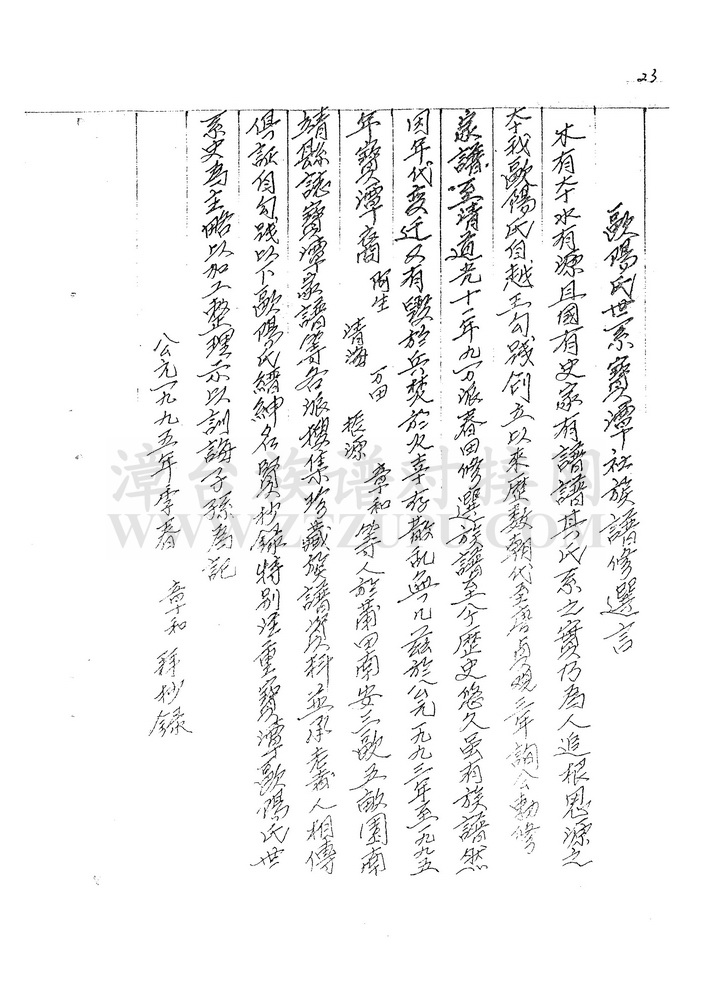 23
歐陽氏世系寶潭社族譜修選言
木有本水有源且國有史家有譜譜其氏系之實乃為人追根思源之
本我歐陽氏自越王勾踐創立以來歷數朝代至唐貞观三年詢公勅修
家譜至清道光十一年九万派春田修選族譜至今歷史悠久虽有族譜然
因年代变迁又有毀於兵焚於火幸存散乱無几兹於公元一九九三年至一九九五
年寶潭裔阿生 清海 万田 振源 章和等人於莆田南安三歐五敵園南
靖縣誌寶潭家譜等各派搜集珍藏族譜資料並承老義人相傳
俱証自勾践以下歐陽氏縉紳名賢抄錄特别注重寶潭歐陽氏世
系史為主略以加工整理示以訓誨子孫為記
公元一九九五年季春 章和 拜抄錄
漳台族谱对接网
WWW.ZTZUPU.COM